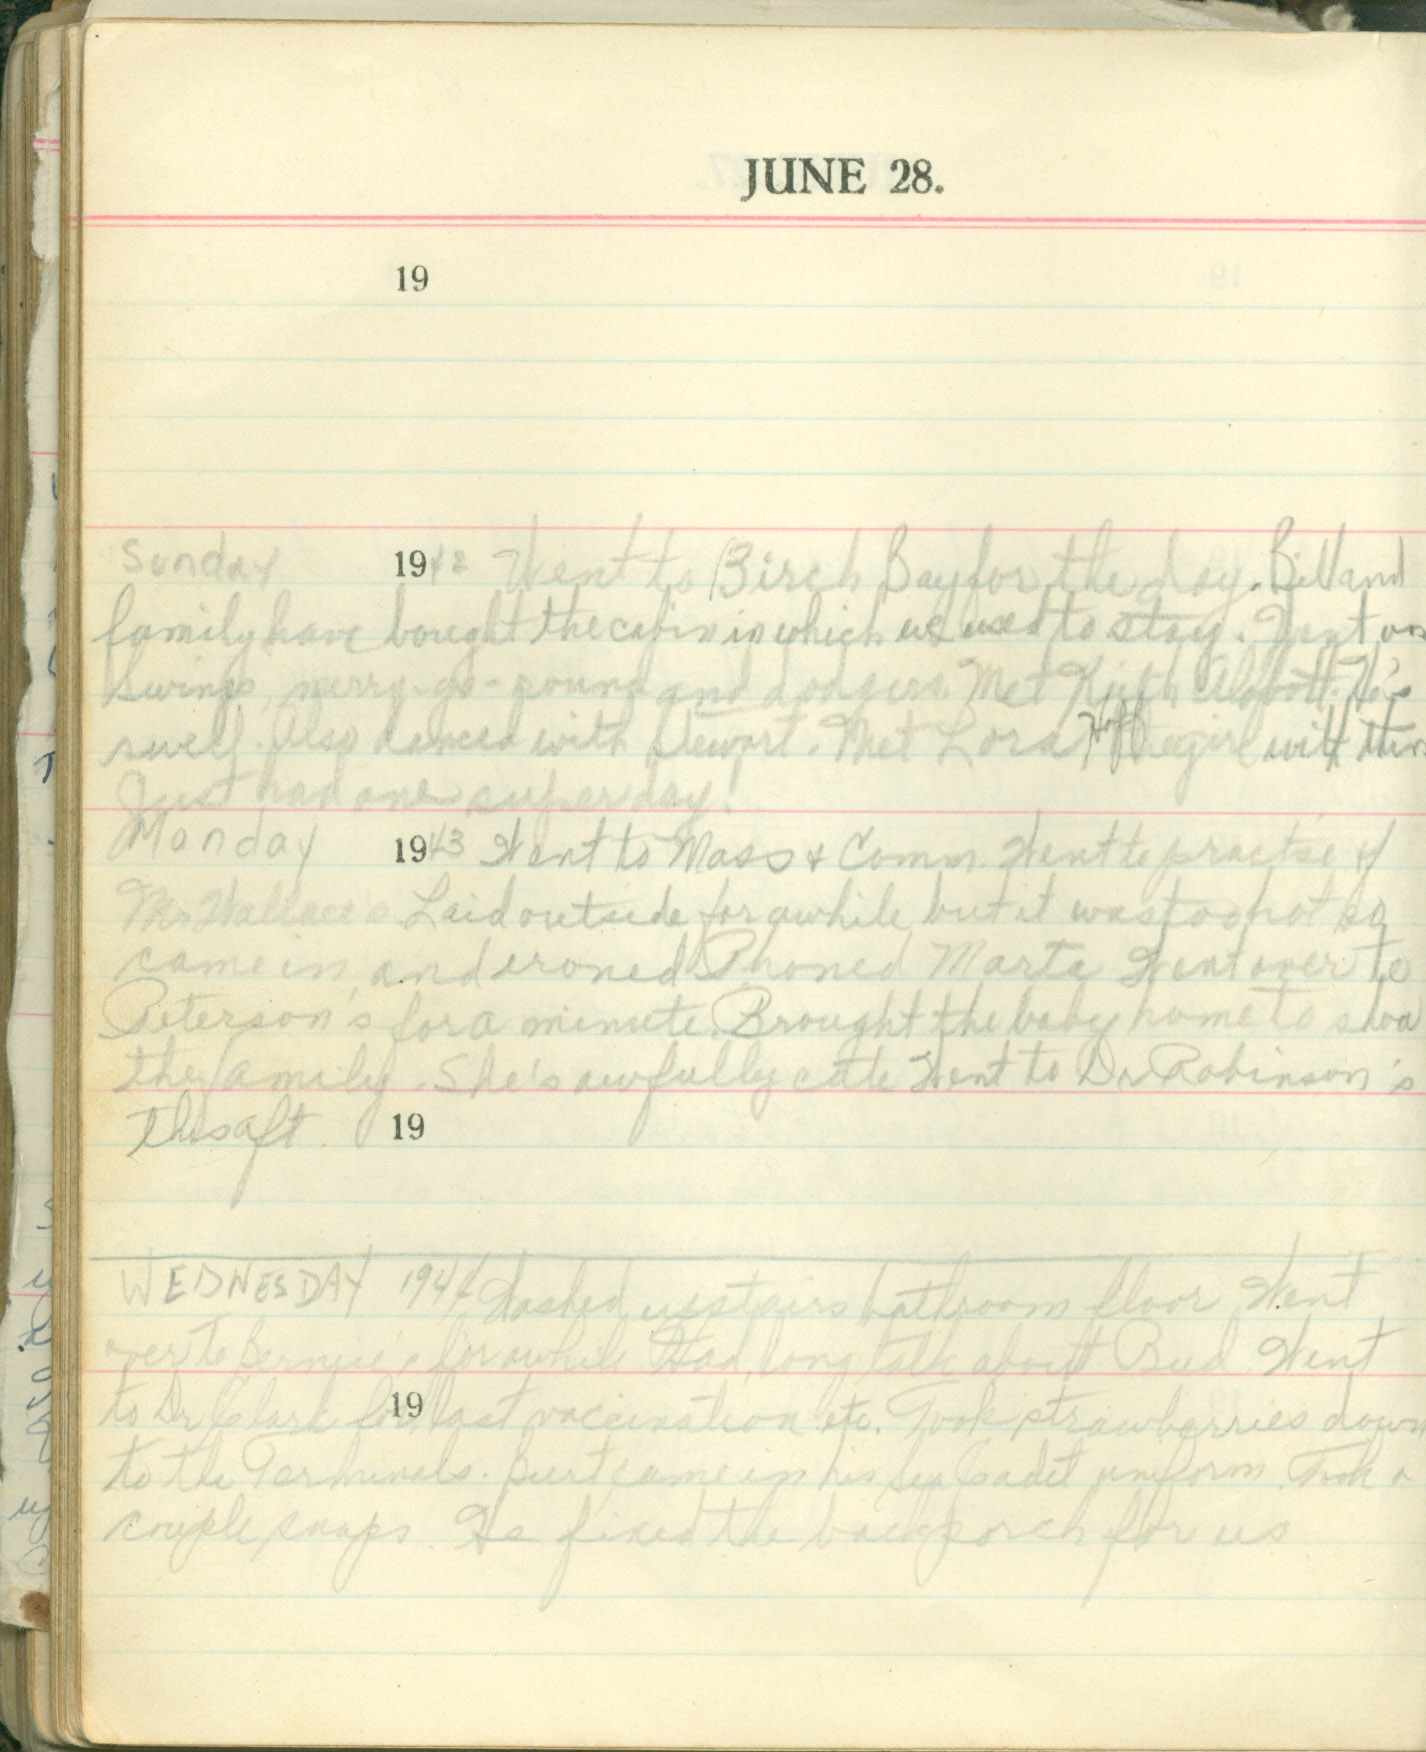 JUNE 28.
19
Sunday 1942 Went to Birch Bay for the day. Bill and
family have bought the cabin in which we used to stay. Went on
swings, merry-go-round and dodgers. Met Keith Abbott. He's
swell. Also danced with Stewart. Met Lora the girl with them
Just had one super day!
Monday 1943 Went to Mass & Comm. Went to practise
Mr Wallace's. Laid outside for awhile but it was too hot so
came in and ironed. Phoned Marta Went over to
Peterson's for a minute. Brought the baby home to show
the family. She's awfully cute Went to Dr Robinson's
this aft. 19
WEDNESDAY 1944 Washed upstairs bathroom floor Went
over to Bernie's for awhile Had long talk about Bud. Went
to Dr Clark for last vaccination etc. Took strawberries down
19
to the Terminals. Burt came in his Sea Cadet uniform. Took a
couple snaps. He fixed the back porch for us